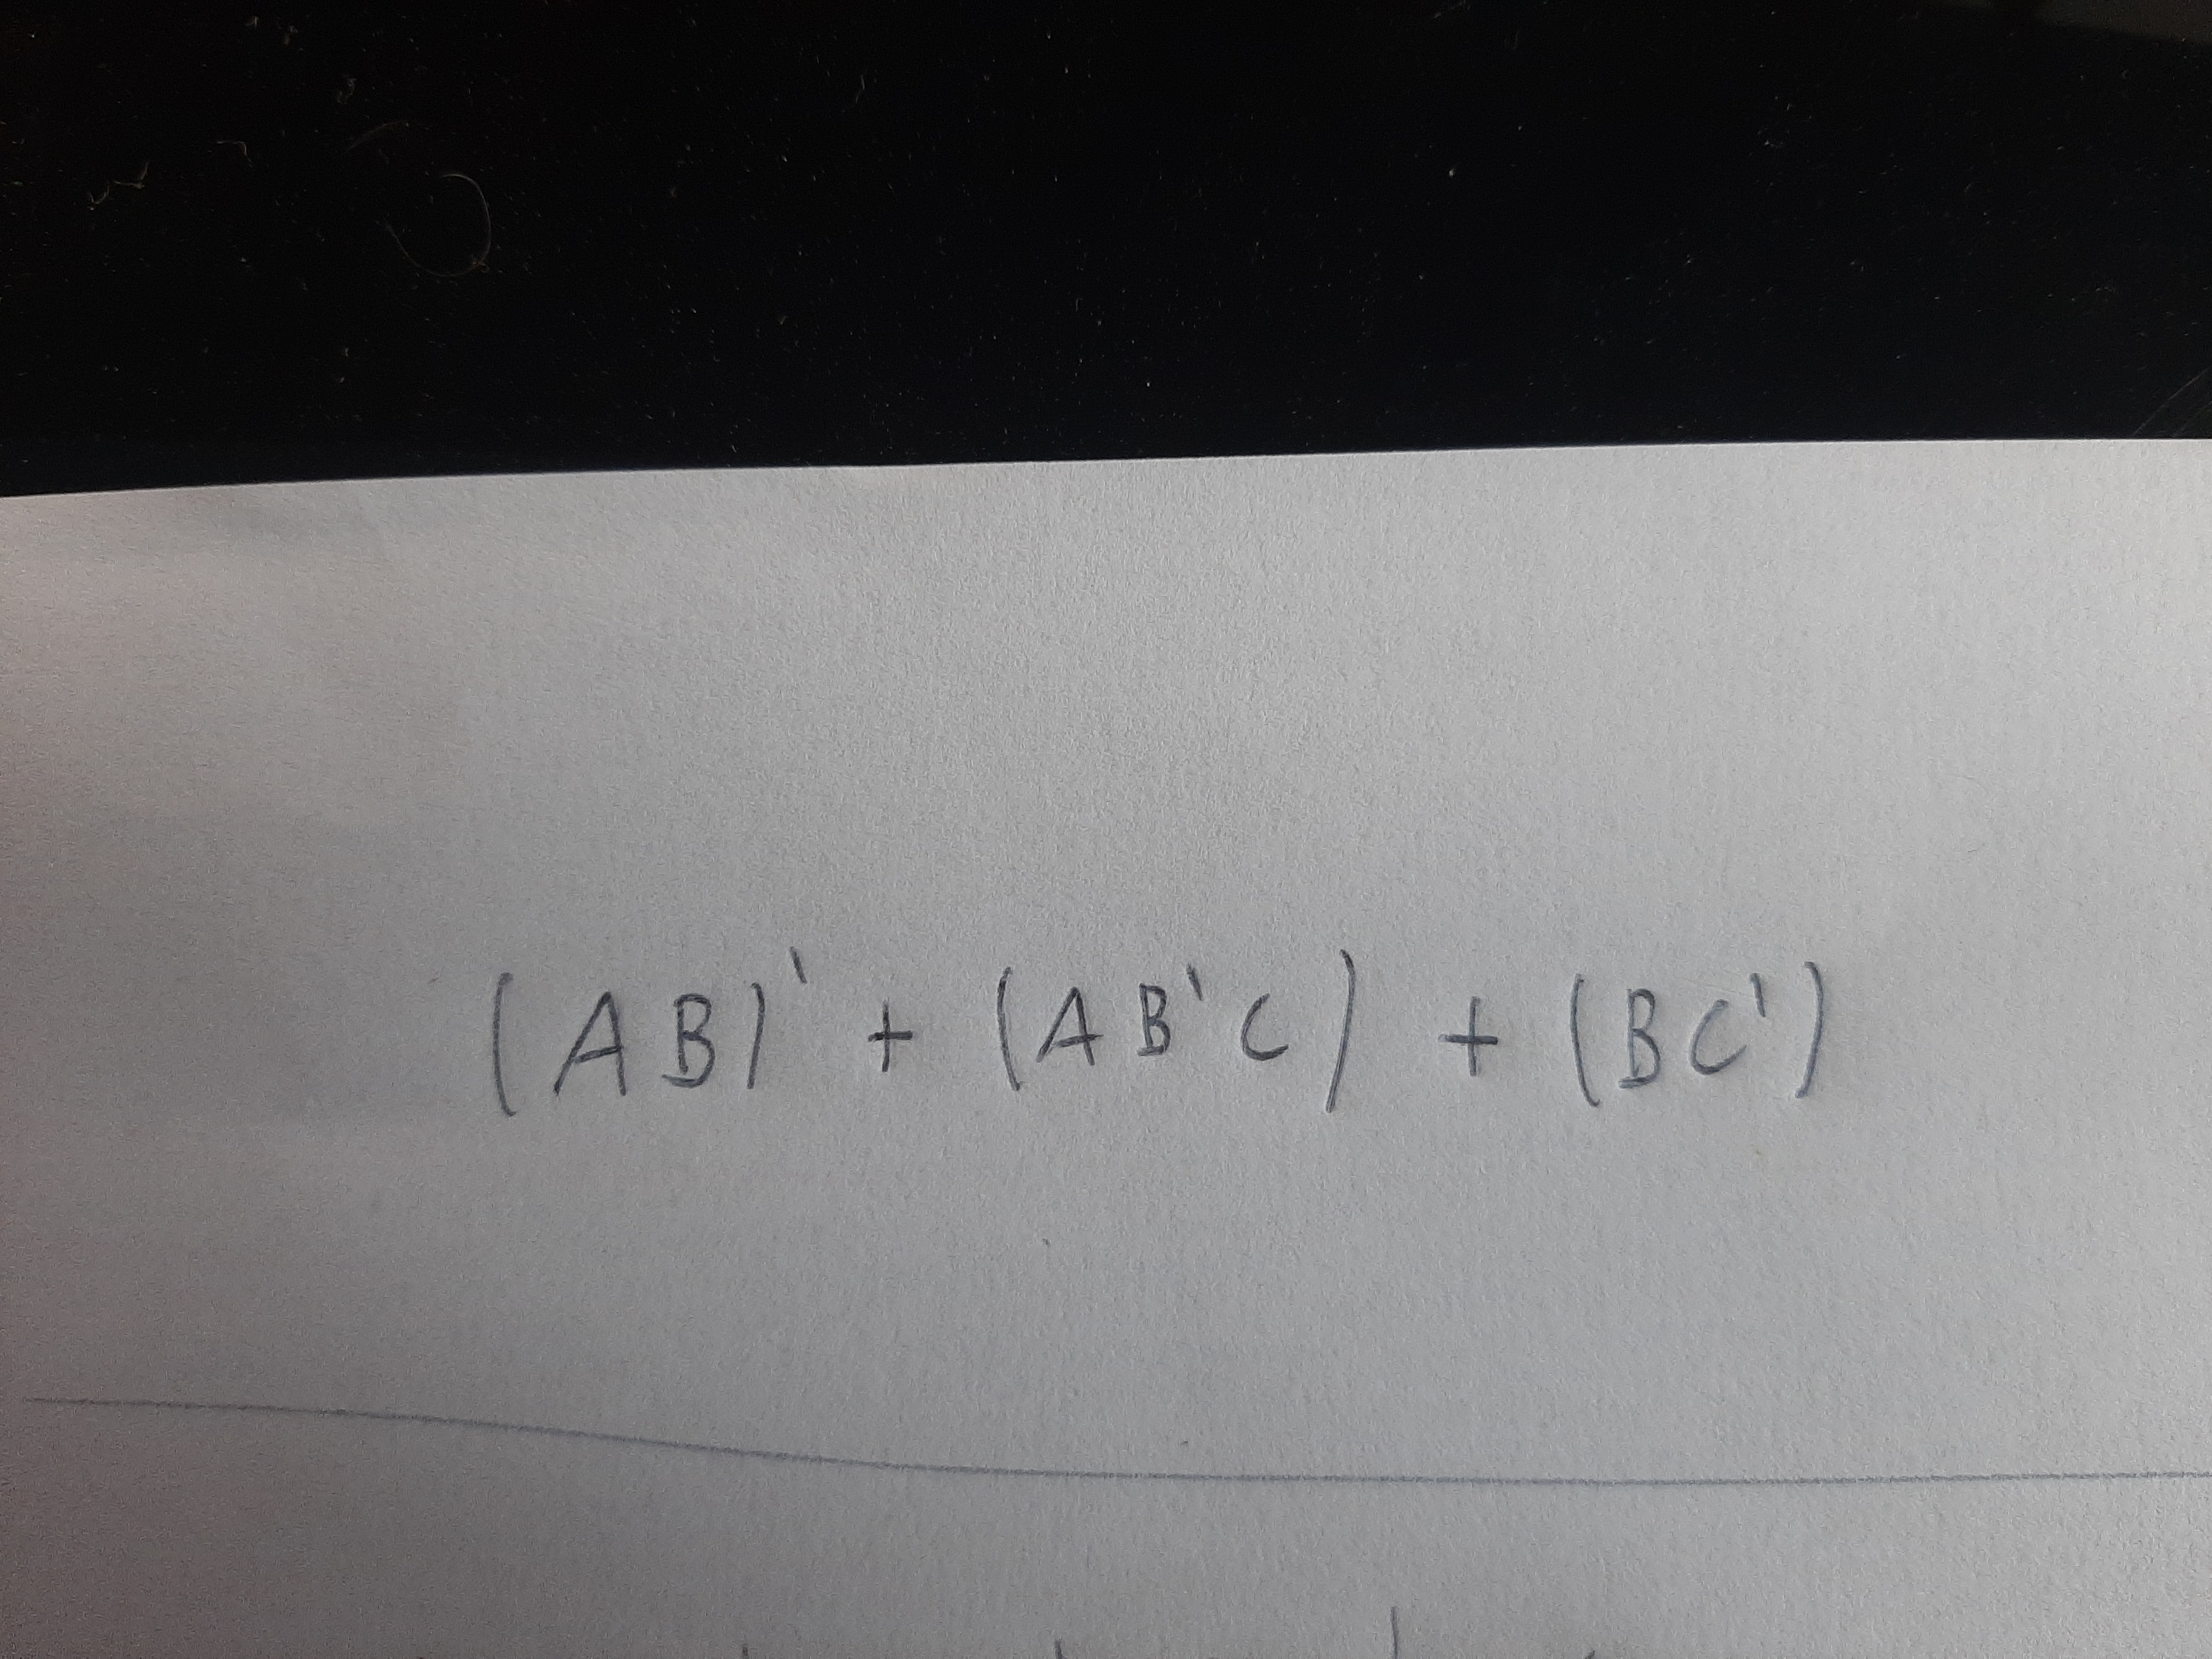 (AB)' + (AB'C) + (BC')